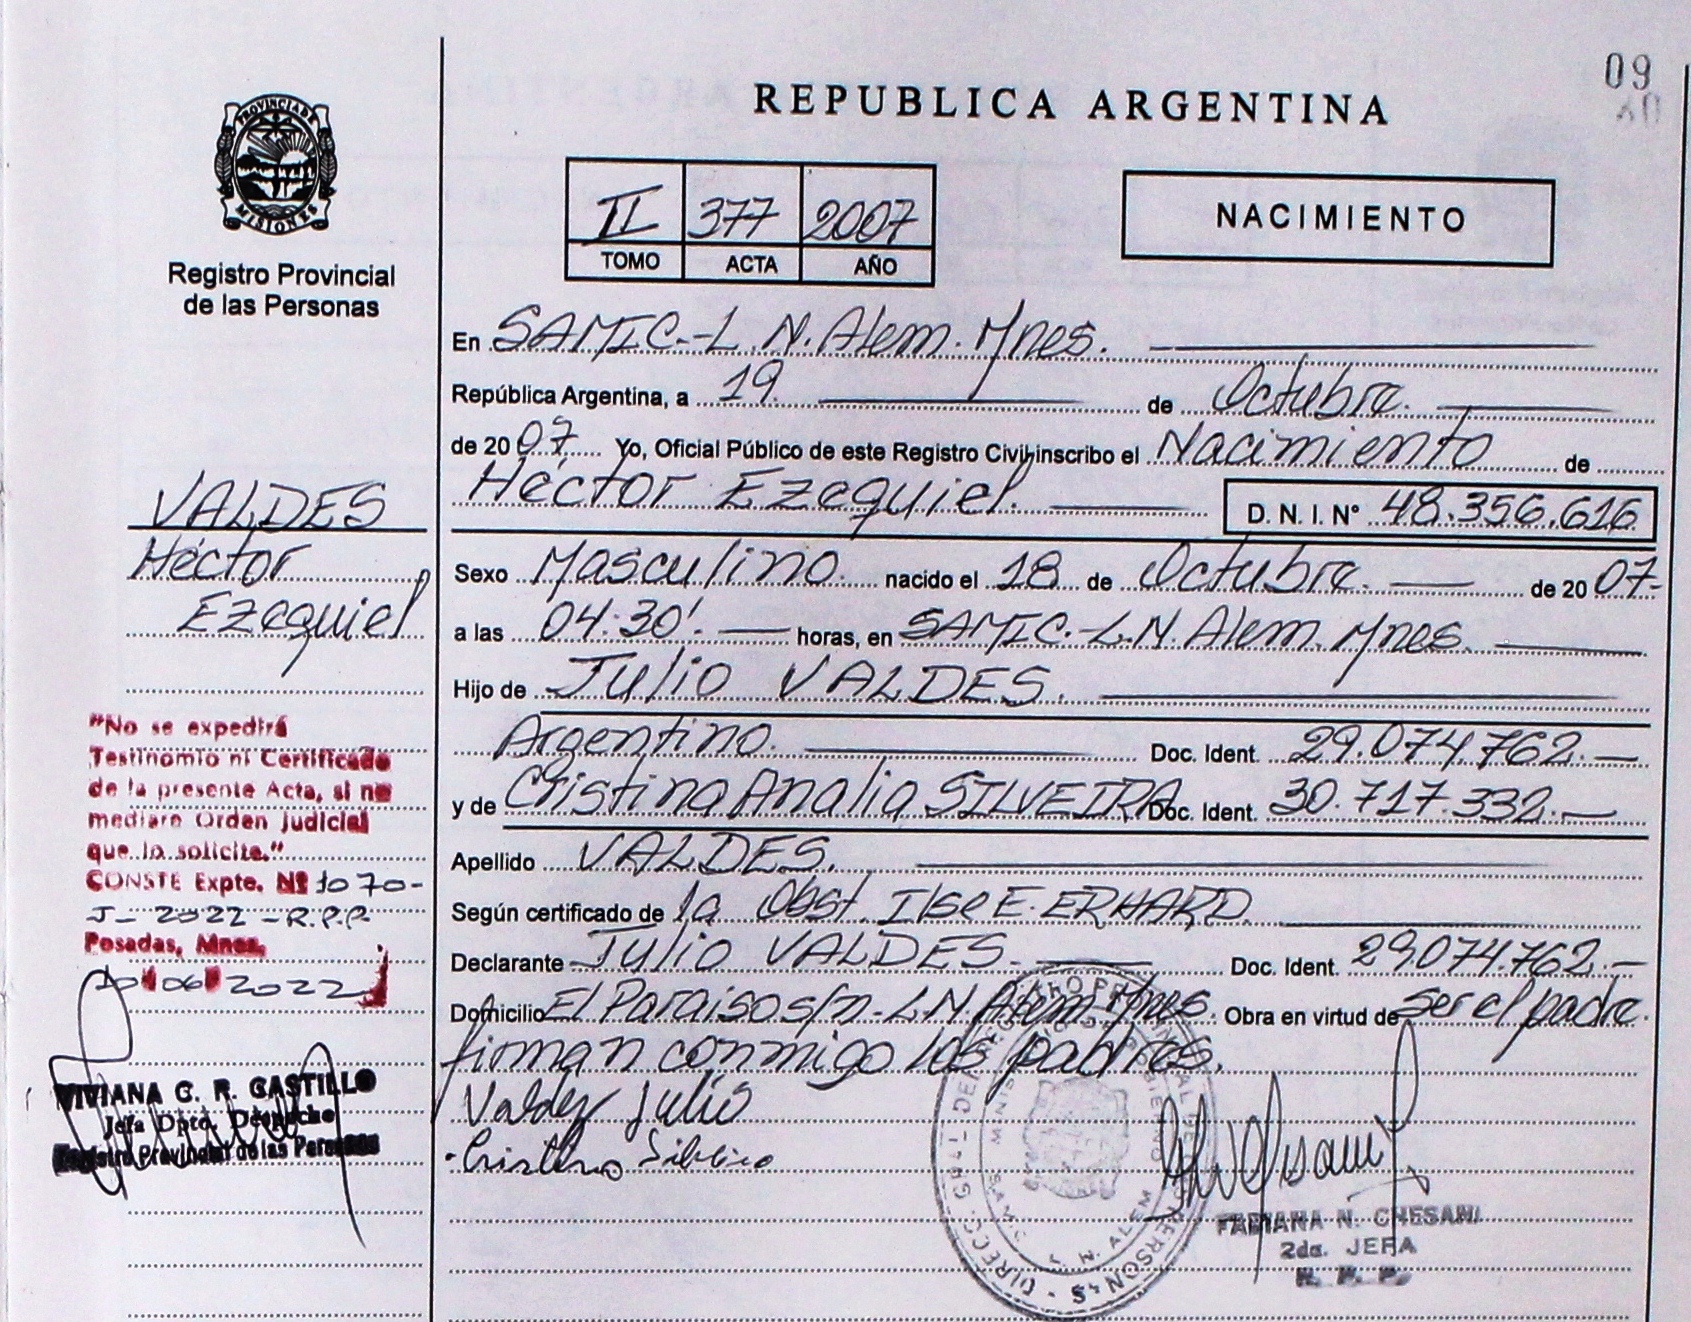 09
REPUBLICA ARGENTINA
PROVINCIA DE
MISIONES
Registro Provincial
de las Personas
II 377 2007
TOMO ACTA AÑO
NACIMIENTO
En SAMIC.-L.N.Alem.Mnes.
República Argentina, a 19 de Octubre.
de 2007. Yo, Oficial Público de este Registro Civil inscribo el Nacimiento de
Héctor Ezequiel. D. N. I. Nº 48.356.616
Sexo Masculino. nacido el 18 de Octubre. de 2007-
a las 04:30'. horas, en SAMIC.-L.N.Alem.Mnes.
Hijo de Julio VALDES.
Argentino. Doc. Ident. 29.074.762.-
y de Cristina Analia SILVEIRA Doc. Ident. 30.717.332.-
Apellido VALDES.
Según certificado de la Obst. Ilse E. ERHARD.
Declarante Julio VALDES. Doc. Ident. 29.074.762.-
Domicilio El Paraiso s/n-L.N.Alem.Mnes. Obra en virtud de ser el padre.
firman conmigo los padres.
Valdez Julio
VALDES
Héctor
Ezequiel
"No se expedirá
Testinomio ni Certificado
de la presente Acta, si no
mediare Orden judicial
que lo solicite."
CONSTE Expte. Nº 1070-
J-2022-R.P.P.
Posadas, Mnes,
06 2022
VIVIANA G. R. CASTILLO
Jefa Dpto. Despacho
Registro Provincial de las Personas
L. N. ALEM
FABIANA N. CHESANI
2da. JEFA
R. P. P.